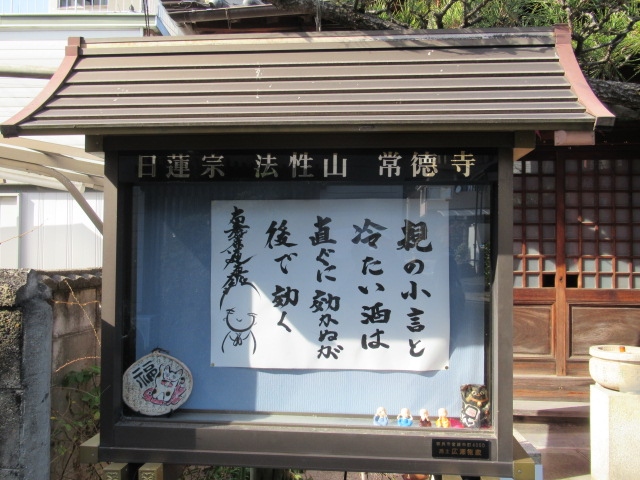 日蓮宗 法性山 常徳寺
親の小言と
冷たい酒は
直ぐに効かぬが
後で効く
南無妙法蓮華経
福